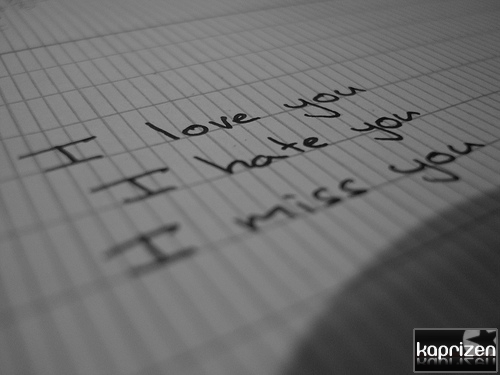 I love you
I hate you
I miss you
kaprizen